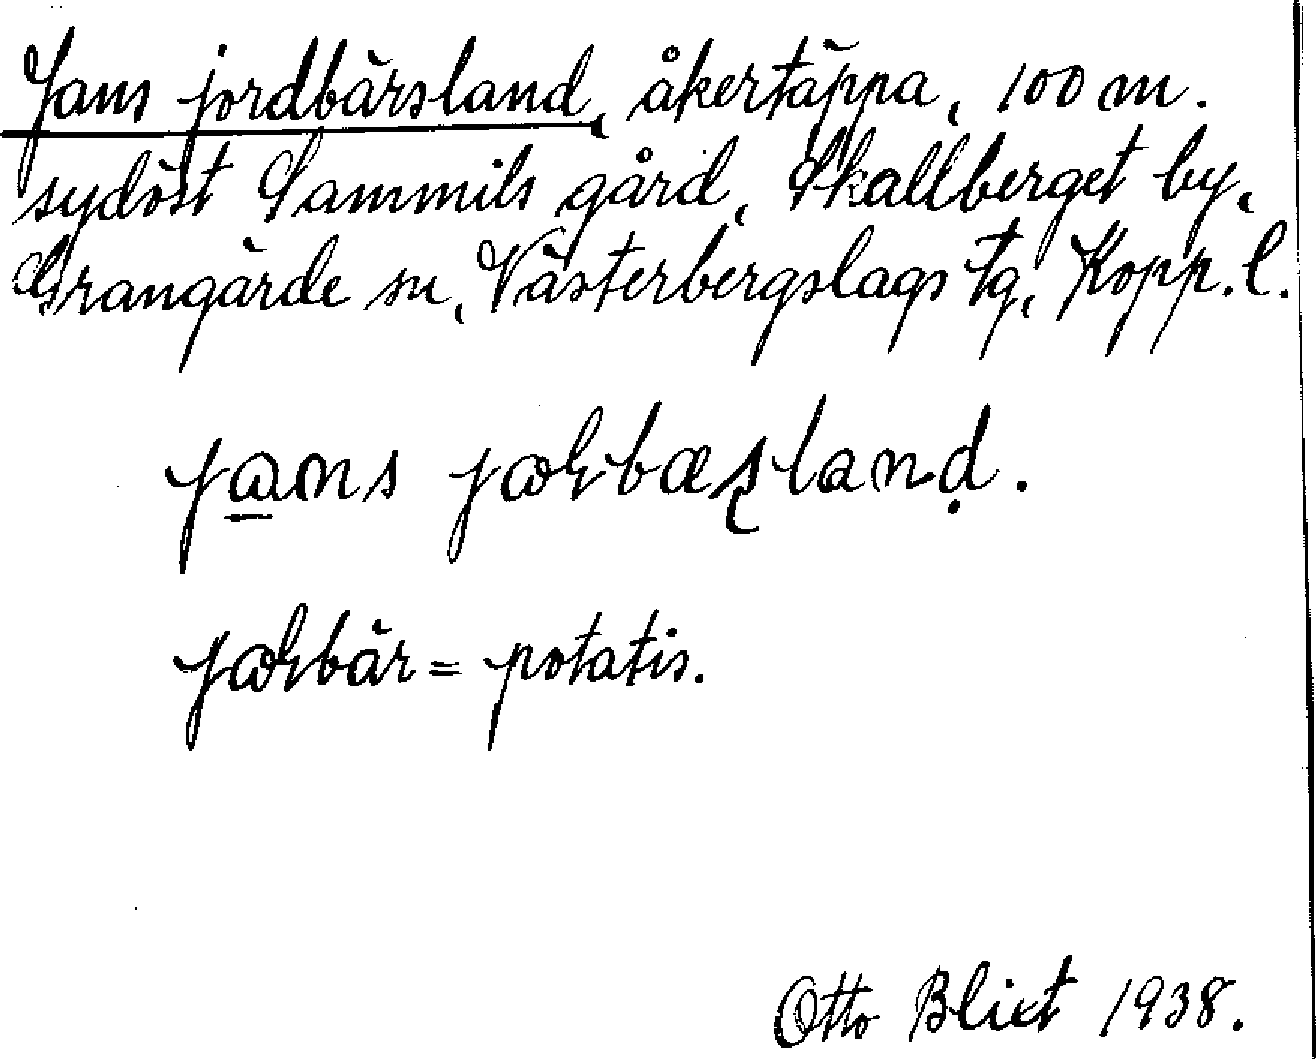 Jans jordbärsland, åkertäppa, 100 m.
sydöst Sammils gård, Skallberget by,
Grangärde sn, Västerbergslags tg, Kopp. l.
jans
potatis.
Otto Blixt 1938.